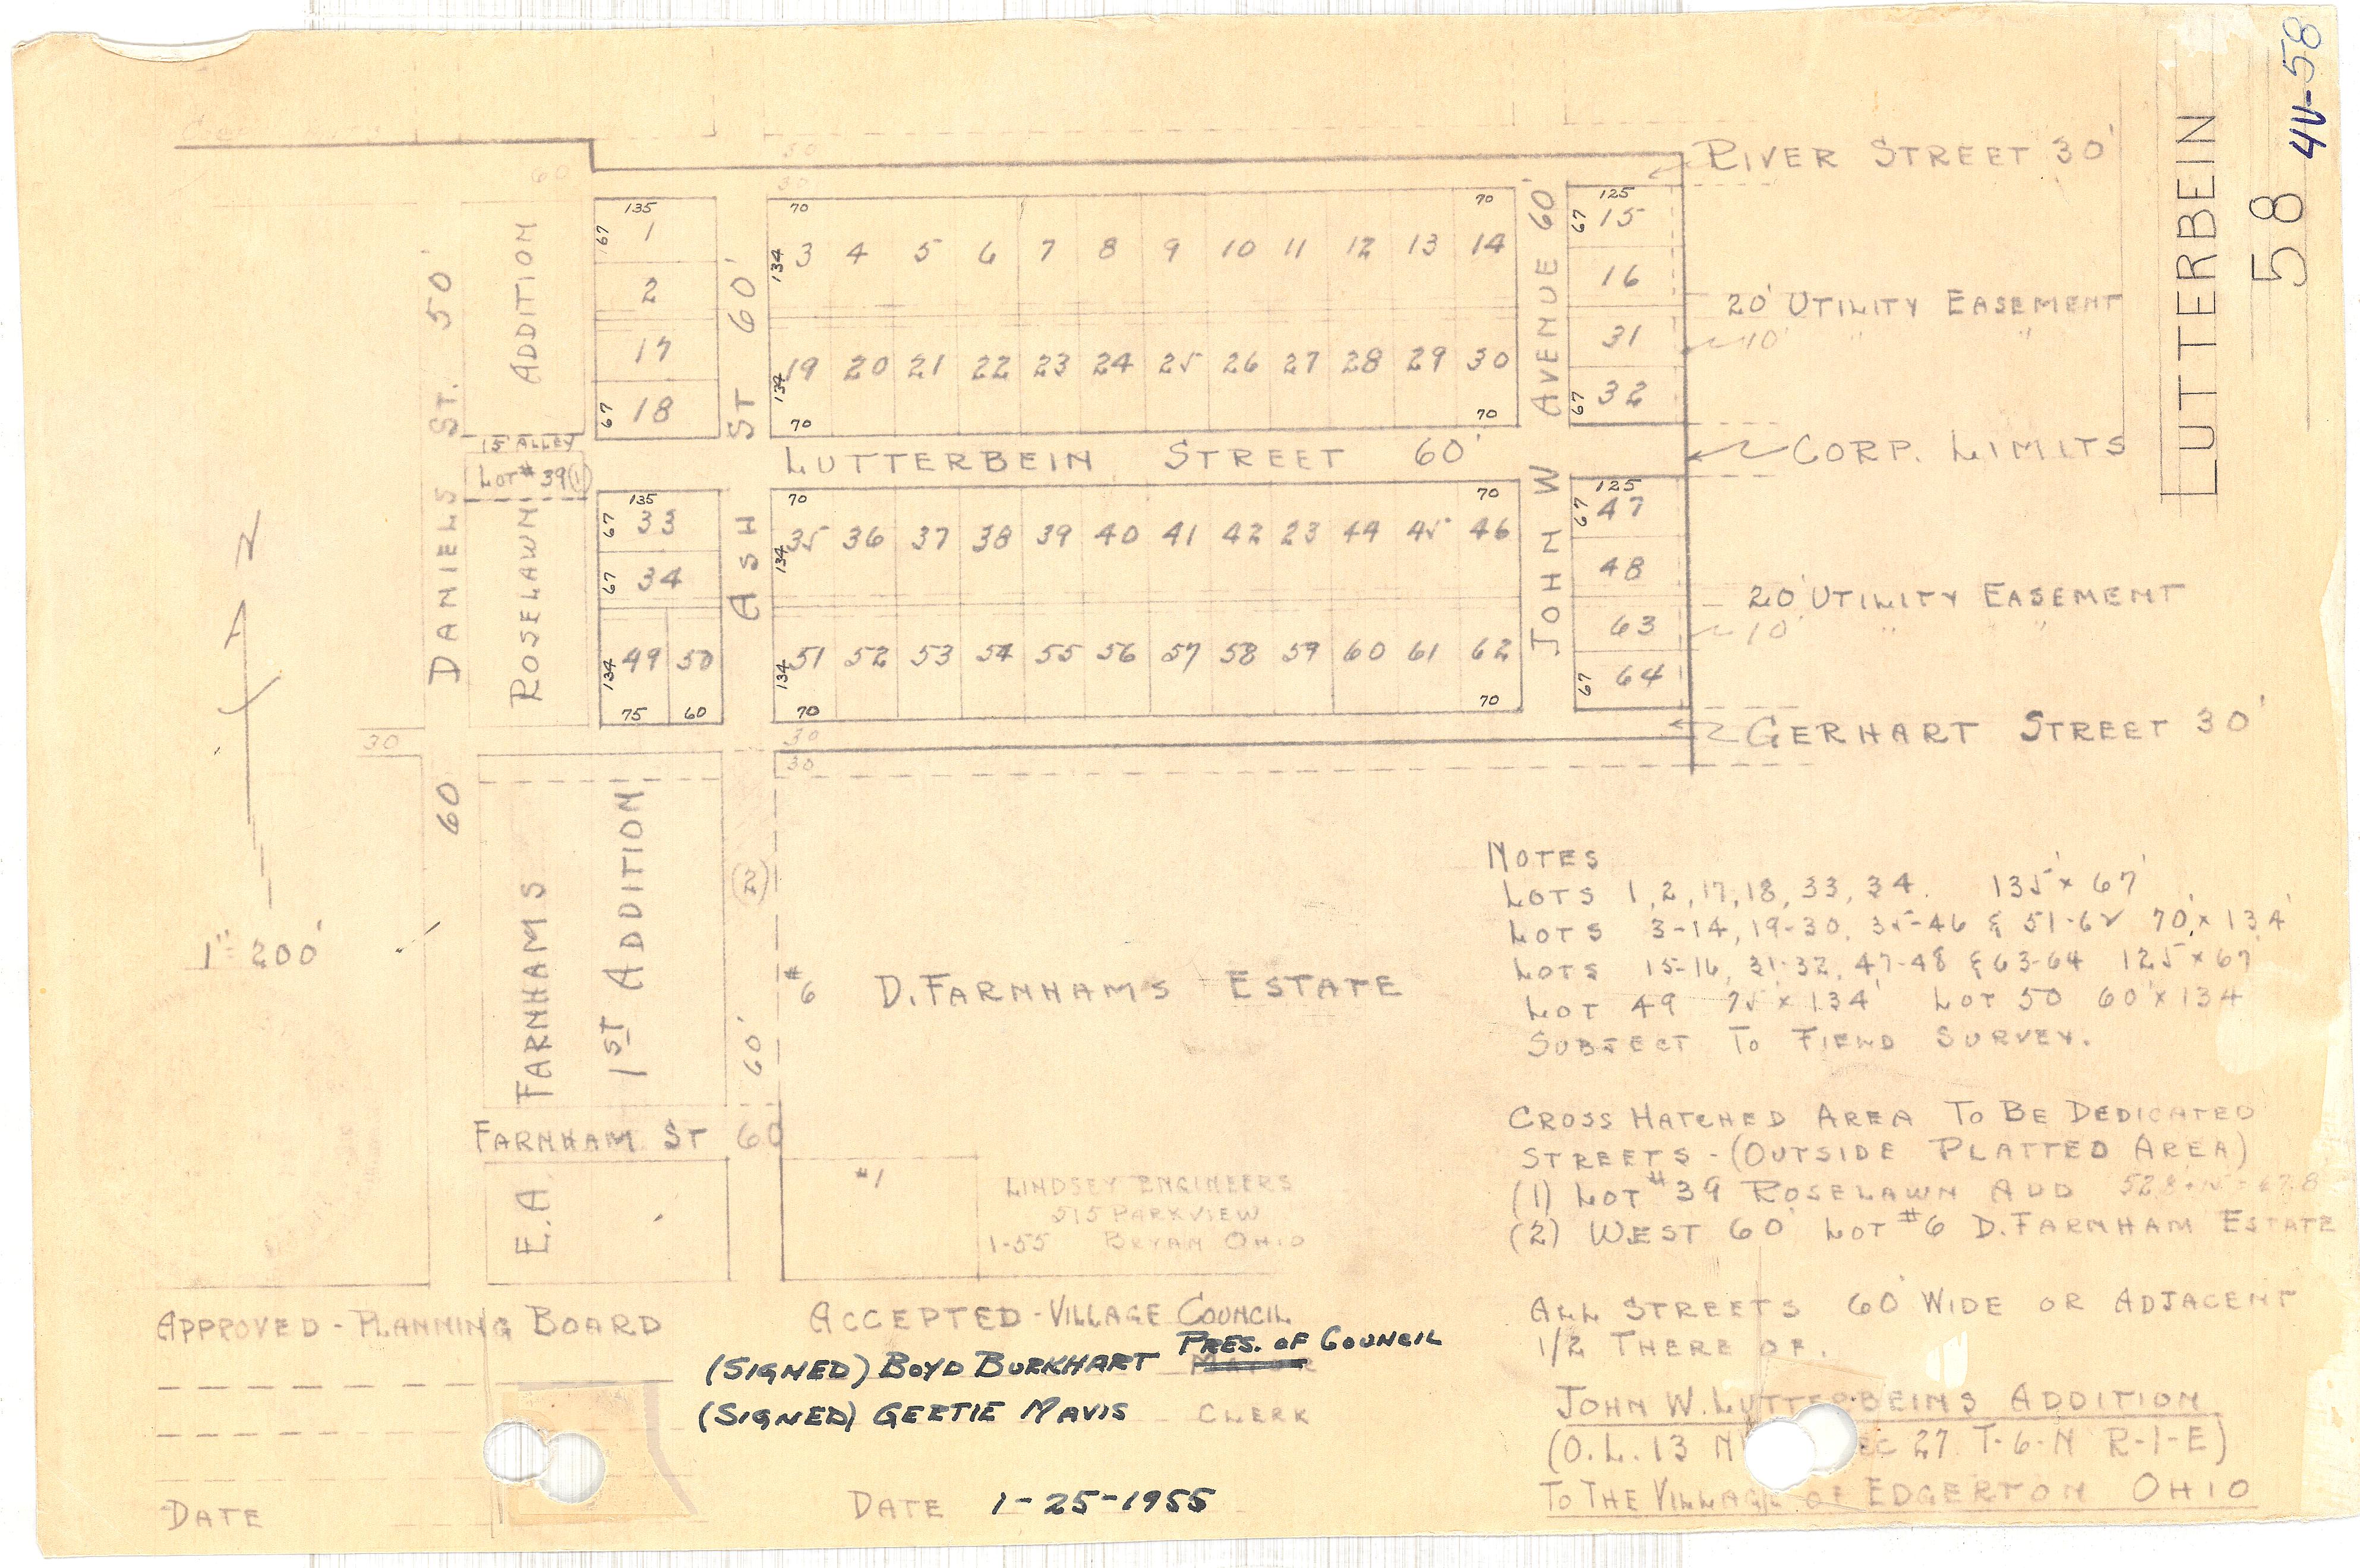 4V-58
LUTTERBEIN
58
RIVER STREET 30'
30
60
30
135
67
1
2
17
67 18
ST 60'
70 70
134 3 4 5 6 7 8 9 10 11 12 13 14
134 19 20 21 22 23 24 25 26 27 28 29 30
70 70
AVENUE 60'
125
67 15
16
31
67 32
20' UTILITY EASEMENT
10' " "
DANIELS ST. 50'
ROSELAWN ADDITION
15 ALLEY
LOT # 39 (1)
LUTTERBEIN STREET 60'
CORP. LIMITS
135
67 33
67 34
134 49 50
75 60
ASH
70 70
134 35 36 37 38 39 40 41 42 23 44 45 46
134 51 52 53 54 55 56 57 58 59 60 61 62
70 70
JOHN W
125
67 47
48
63
67 64
20' UTILITY EASEMENT
10' " "
GERHART STREET 30'
30
30
30
N
60
1" = 200'
E.A. FARNHAMS
1ST ADDITION
(2)
60'
#6 D. FARNHAMS ESTATE
FARNHAM ST 60
#1
LINDSEY ENGINEERS
515 PARKVIEW
1-55 BRYAN OHIO
NOTES
LOTS 1, 2, 17, 18, 33, 34. 135' × 67'
LOTS 3-14, 19-30, 35-46 & 51-62 70' × 134'
LOTS 15-16, 31-32, 47-48 & 63-64 125' × 67'
LOT 49 75' × 134' LOT 50 60' × 134
SUBJECT TO FIELD SURVEY.
CROSS HATCHED AREA TO BE DEDICATED
STREETS - (OUTSIDE PLATTED AREA)
(1) LOT #39 ROSELAWN ADD
(2) WEST 60' LOT #6 D. FARNHAM ESTATE
ALL STREETS 60' WIDE OR ADJACENT
1/2 THERE OF.
JOHN W. LUTTERBEINS ADDITION
(O.L. 13 N EC 27 T-6-N R-1-E)
TO THE VILLAGE OF EDGERTON OHIO
APPROVED - PLANNING BOARD
DATE
ACCEPTED - VILLAGE COUNCIL
(SIGNED) BOYD BURKHART PRES. OF COUNCIL
MAYOR
(SIGNED) GERTIE MAVIS CLERK
DATE 1-25-1955